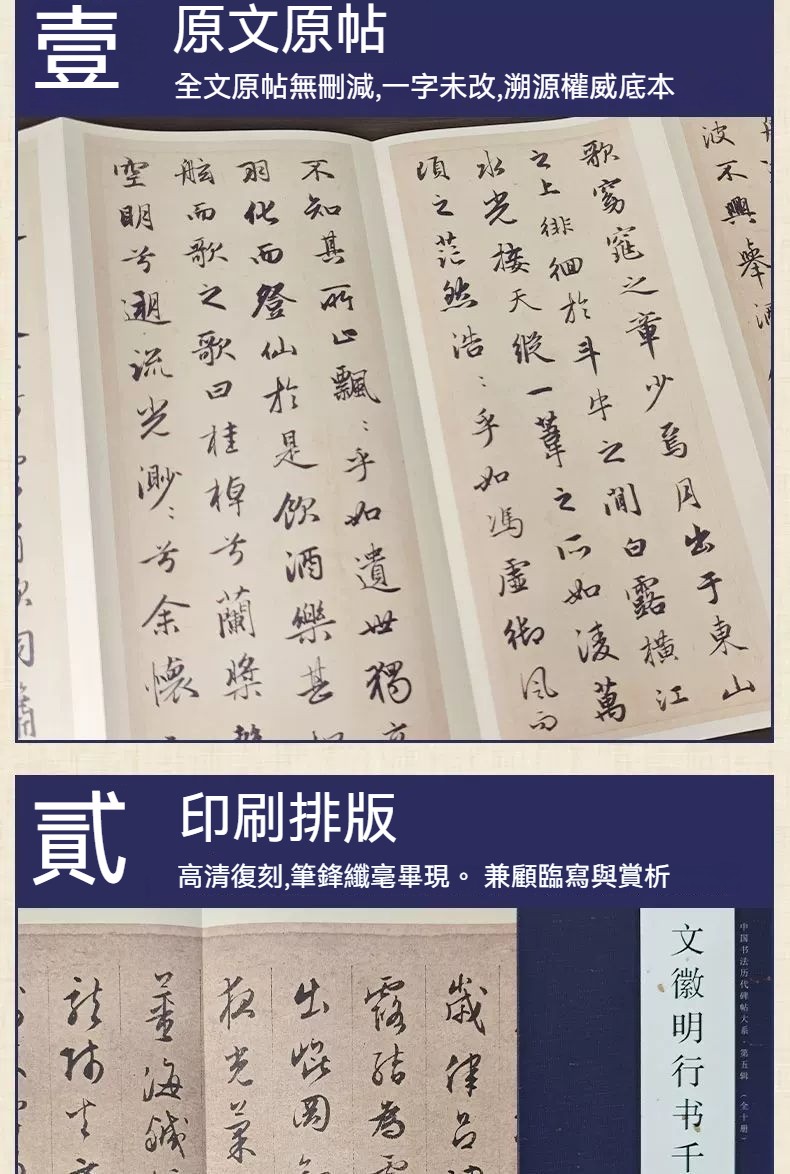 壹
原文原帖
全文原帖無刪減,一字未改,溯源權威底本
波不興舉酒
歌窈窕之章少焉月出于東山
之上徘徊於斗牛之間白露橫江
水光接天縱一葦之所如淩萬
頃之茫然浩:乎如馮虛御風而
不知其所止飄:乎如遺世獨
羽化而登仙於是飲酒樂甚
舷而歌之歌曰桂棹兮蘭槳
空明兮遡流光渺:兮余懷
貳
印刷排版
高清復刻,筆鋒纖毫畢現。兼顧臨寫與賞析
中国书法历代碑帖大系·第五辑（全十册）
文徵明行书千
歲律呂
露結為
出崑岡
夜光菓
薑海鹹
龍師